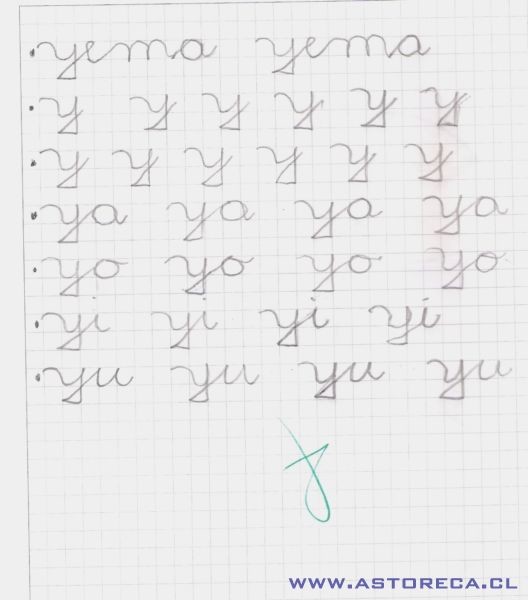 yema yema
y y y y y y
y y y y y y
ya ya ya ya
yo yo yo yo
yi yi yi yi
yu yu yu yu
WWW.ASTORECA.CL